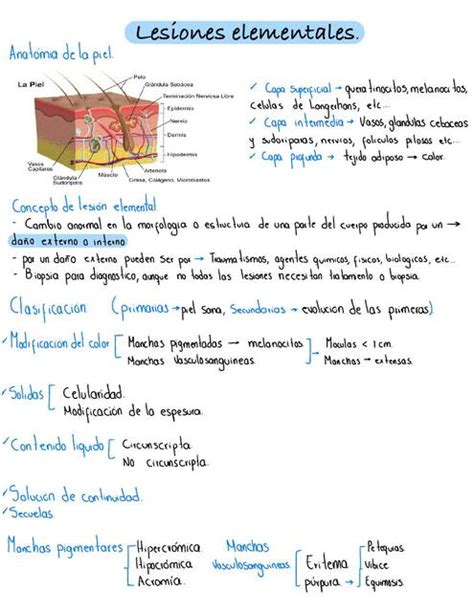 Lesiones elementales.
Anatomia de la piel.
La Piel
Pelo
Glándula Sebácea
Terminación Nerviosa Libre
Epidermis
Nervio
Dermis
Hipodermis
Arteriola
Grasa, Colágeno,
Músculo
Glándula
Sudorípara
Vasos
Capilares
✓ Capa superficial → queratinocitos, melanocitos,
Celulas de Langerhans, etc...
✓ Capa intermedia → Vasos, glandulas cebaceas
y sudoriparas, nervios, foliculos pilosos etc...
✓ Capa profunda → tejido adiposo → calor.
Concepto de lesión elemental
- Cambio anormal en la morfologia o estructura de una parte del cuerpo producida por un →
daño externo o interno
- por un daño externo pueden ser por → Traumatismos, agentes quimicos, fisicos, biologicos, etc...
- Biopsia para diagnostico, aunque no todas las lesiones necesitan tratamiento o biopsia.
Clasificación (primarias → piel sana, Secundarias → evolucion de las primeras)
✓ Modificacion del color [ Manchas pigmentadas → melanocitos
Manchas vasculosanguineas ] → Maculas < 1cm.
Manchas → extensas.
✓ Solidas [ Celularidad.
Modificación de la espesura.
✓ Contenido liquido [ Circunscripta.
No circunscripla.
✓ Solucion de continuidad.
✓ Secuelas.
Manchas pigmentares Hipercrómica.
Hipocrómica
Acromía.
Manchas
vasculosanguineas Eritema
púrpura → Petequias.
Vibice
Equimosis.